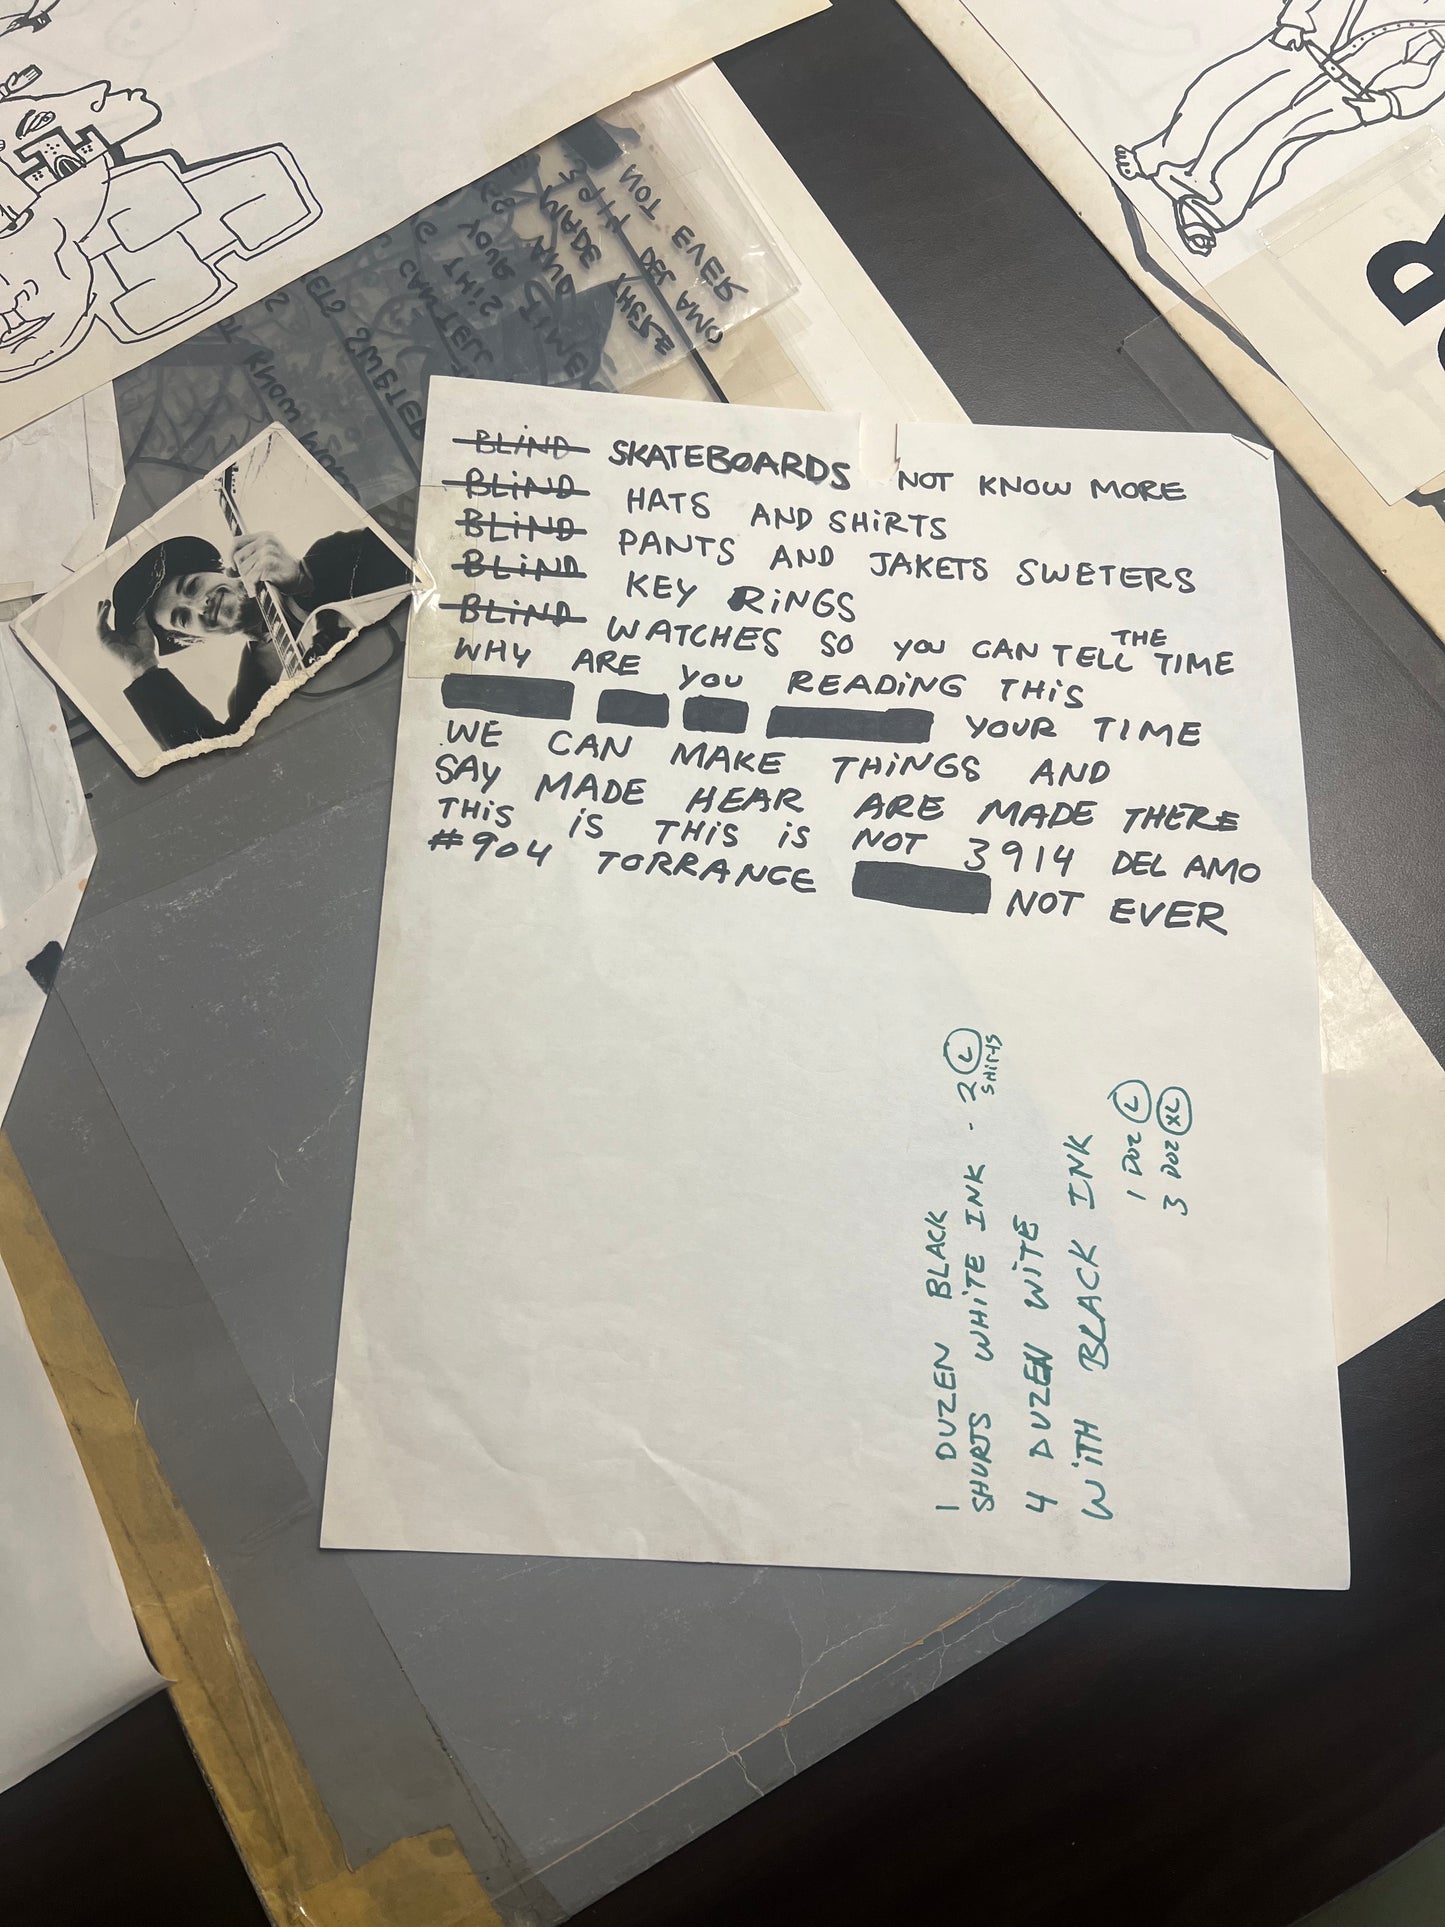 BLIND SKATEBOARDS NOT KNOW MORE
BLIND HATS AND SHIRTS
BLIND PANTS AND JAKETS SWETERS
BLIND KEY RINGS
BLIND WATCHES SO YOU CAN TELL THE TIME
WHY ARE YOU READING THIS
YOUR TIME
WE CAN MAKE THINGS AND
SAY MADE HEAR ARE MADE THERE
THIS IS THIS IS NOT 3914 DEL AMO
#904 TORRANCE NOT EVER
1 DUZEN BLACK
SHURTS WHITE INK - 2 L
SHIRTS
4 DUZEN WITE
WITH BLACK INK
1 DOZ L
3 DOZ XL